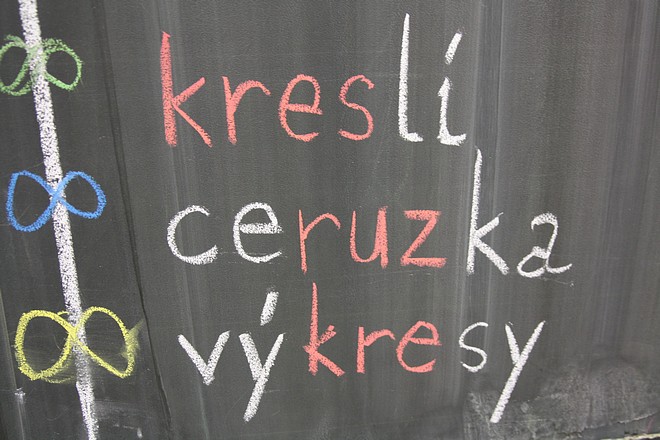 kreslí
ceruzka
výkresy